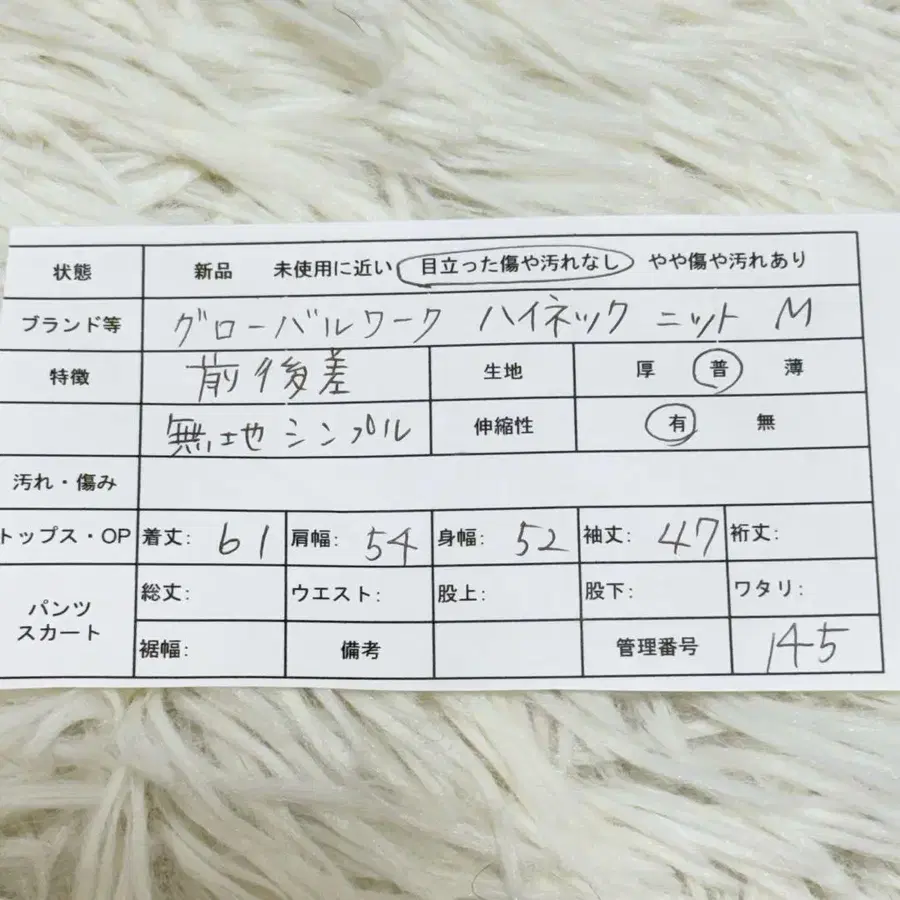 状態 新品 未使用に近い 目立った傷や汚れなし やや傷や汚れあり
ブランド等 グローバルワーク ハイネック ニット M
特徴 前後差 生地 厚 普 薄
無地シンプル 伸縮性 有 無
汚れ・傷み
トップス・OP 着丈: 61 肩幅: 54 身幅: 52 袖丈: 47 裄丈:
パンツ
スカート
総丈: ウエスト: 股上: 股下: ワタリ:
裾幅: 備考 管理番号 145